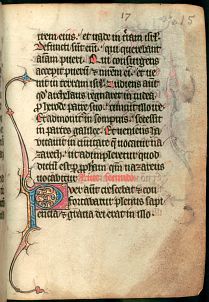 17
trem eius. et uade in terram isrl.
Defuncti sunt enim qui querebant
animam pueri. Qui consurgens
accepit puerum & matrem eius. et ue
nit in terram isrl. Audiens autem
quod archelaus regnaret in iudea
pro herode patre suo. timuit illo ire
Et admonitus in sompnis. secessit
in partes galilee. Et ueniens ha
bitauit in ciuitate que uocatur na
zareth. ut adimpleretur quod
dictum est per prophetam quoniam nazareus
uocabitur.
Puer autem crescebat & con
fortabatur plenus sapi
entia. & gratia dei erat in illo.